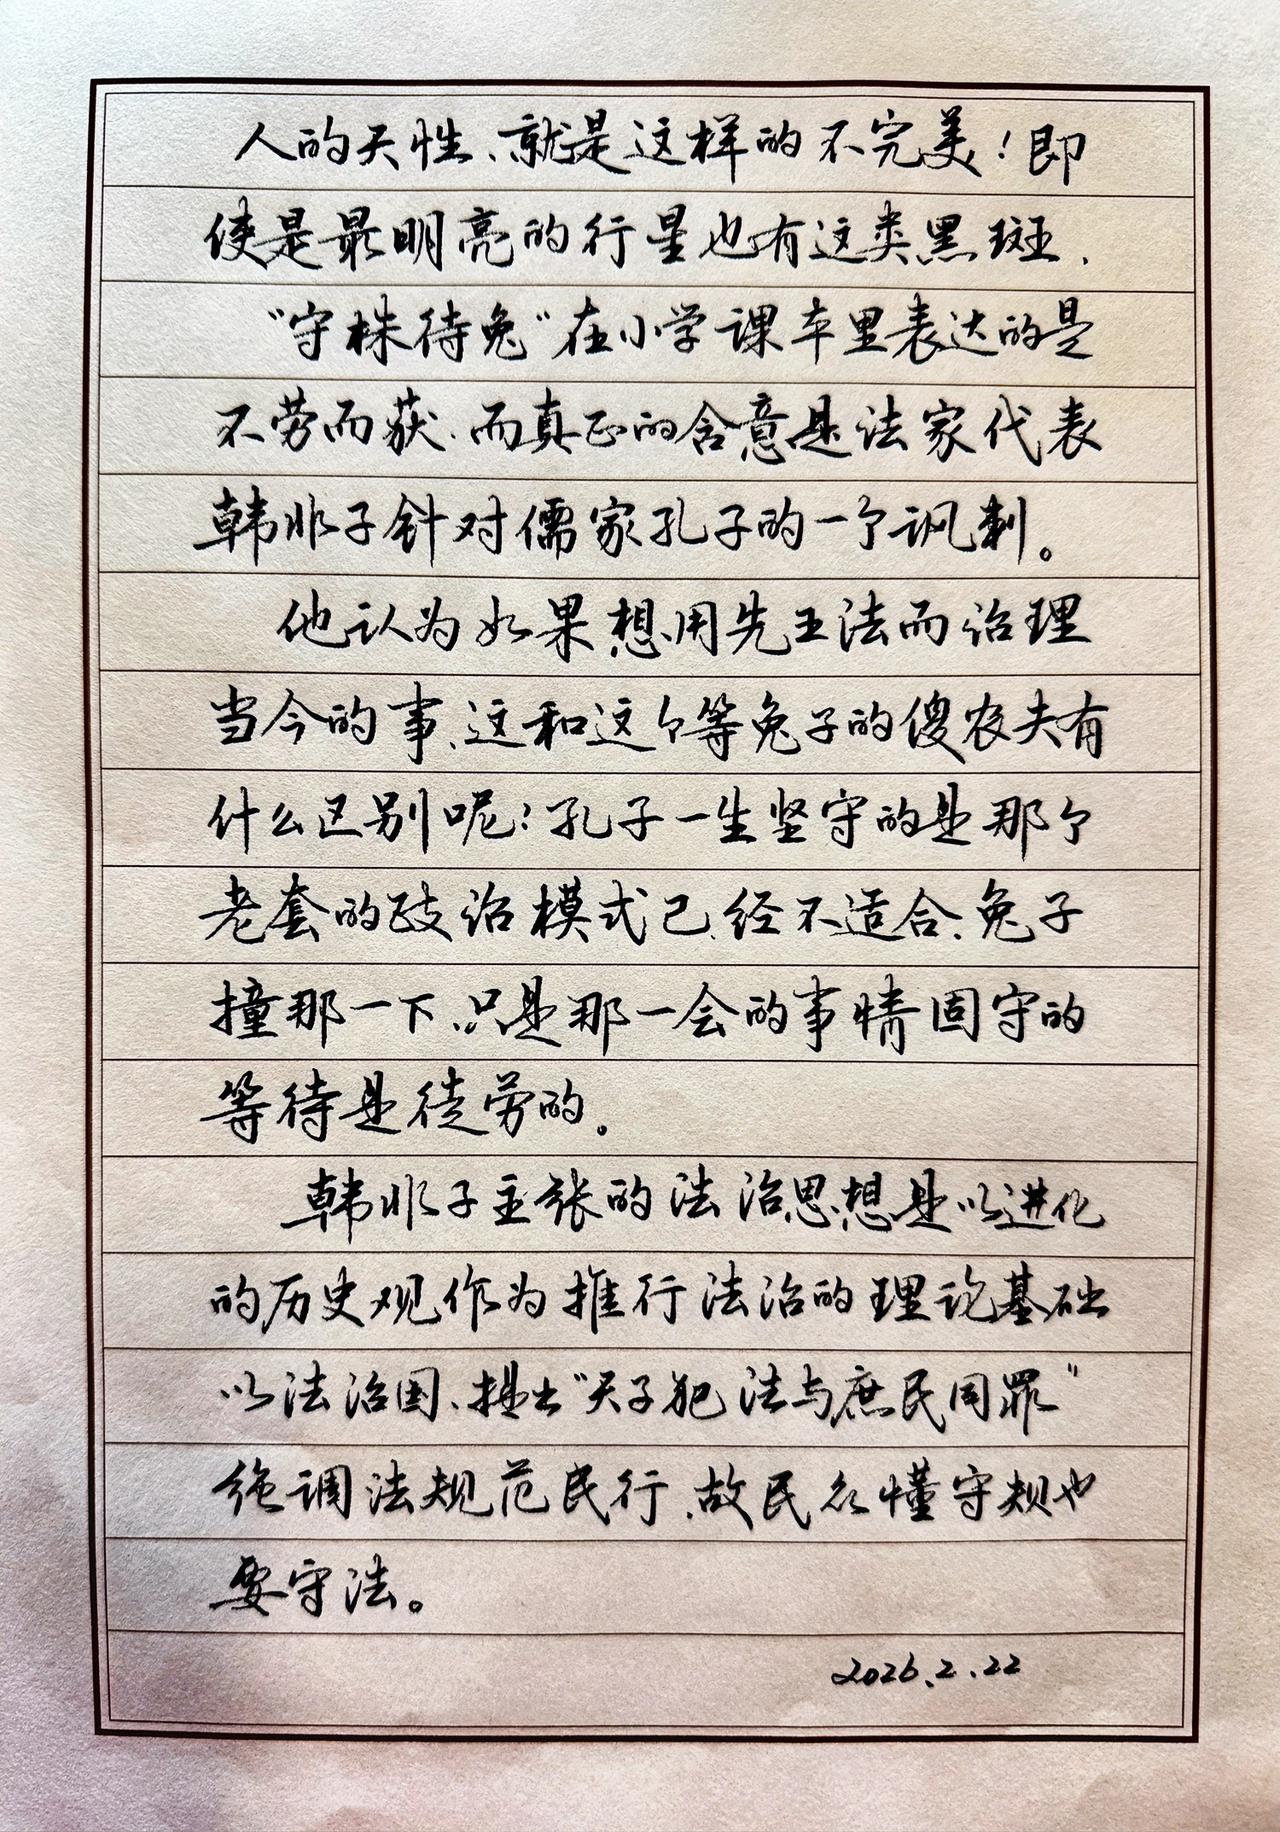 人的天性、就是这样的不完美！即
使是最明亮的行星也有这类黑斑.
“守株待兔”在小学课本里表达的是
不劳而获.而真正的含意是法家代表
韩非子针对儒家孔子的一个讽刺。
他认为如果想用先王法而治理
当今的事、这和这个等兔子的傻农夫有
什么区别呢？孔子一生坚守的是那个
老套的政治模式已经不适合、兔子
撞那一下、只是那一会的事情固守的
等待是徒劳的。
韩非子主张的法治思想是以进化
的历史观作为推行法治的理论基础
以法治国、提出“天子犯法与庶民同罪”
强调法规范民行、故民众懂守规也
要守法。
2026.2.22